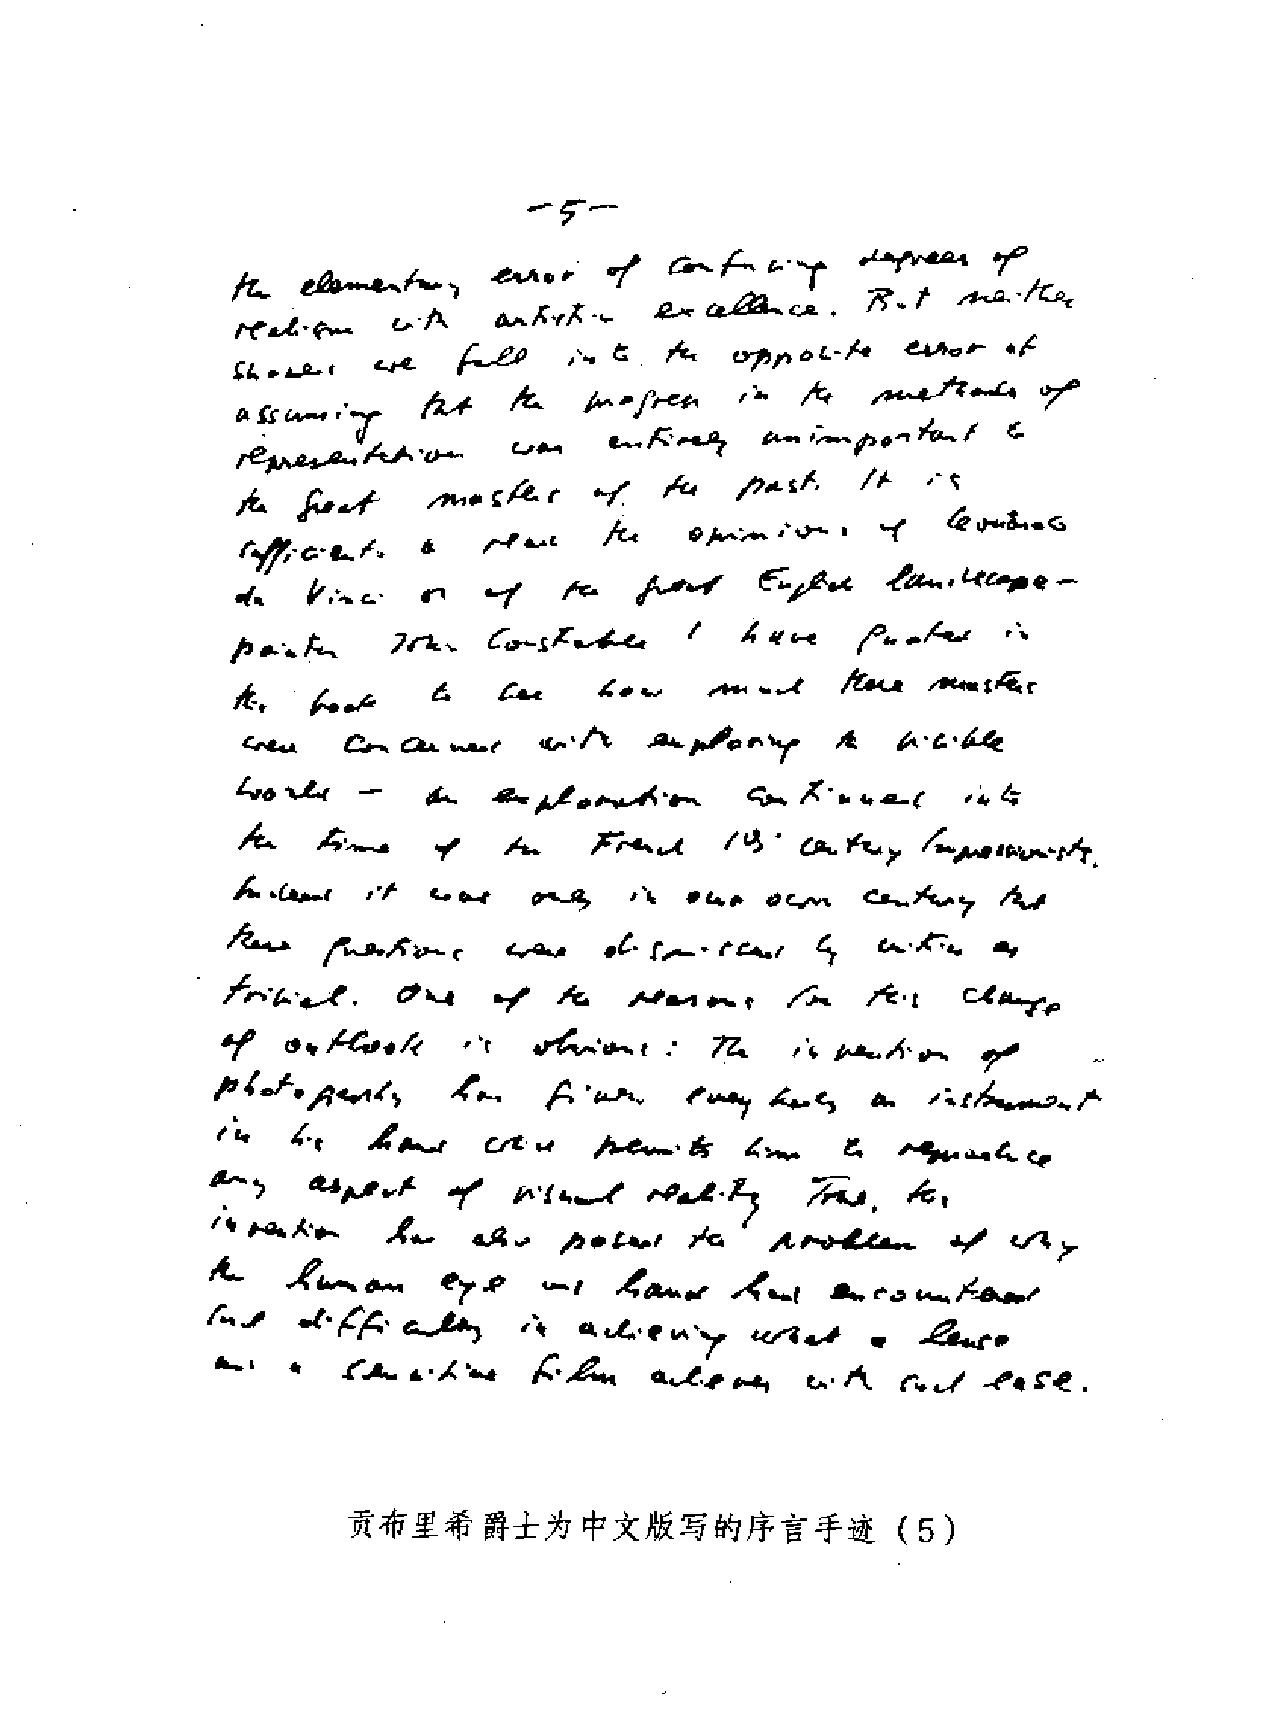 -5-
the elementary error of confusing degrees of
realism with artistic excellence. But neither
should we fall into the opposite error of
assuming that the progress in the methods of
representation was entirely unimportant to
the great masters of the past. It is
sufficient to read the opinions of Leonardo
da Vinci or of the great English landscape-
painter John Constable I have quoted in
this book to see how much these masters
were concerned with exploring the visible
world - an exploration continued into
the time of the French 19. century Impressionists.
Indeed it was only in our own century that
these questions were dismissed by critics as
trivial. One of the reasons for this change
of outlook is obvious: The invention of
photography has given everybody an instrument
in his hand which permits him to reproduce
any aspect of visual reality. True, this
invention has also posed the problem of why
the human eye and hand had encountered
such difficulty in achieving what a lense
and a sensitive film achieves with such ease.
贡布里希爵士为中文版写的序言手迹（5）